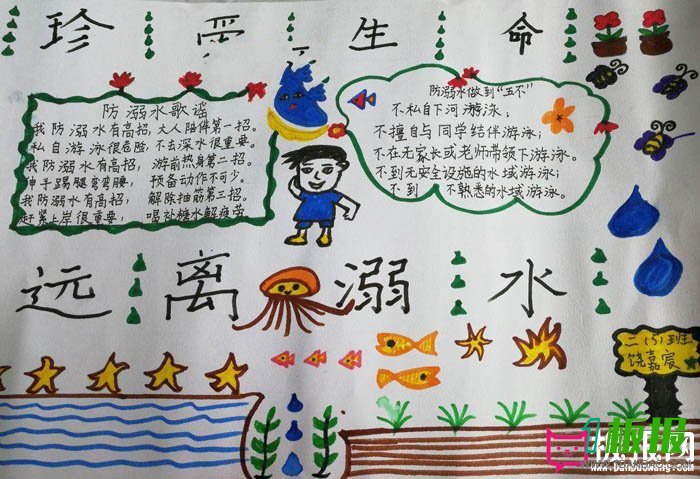 珍爱生命
防溺水歌谣
我防溺水有高招，大人陪伴第一招。
私自游泳很危险，不去深水很重要。
我防溺水有高招，游前热身第二招。
伸手踢腿弯弯腰，预备动作不可少。
我防溺水有高招，解除抽筋第三招。
赶紧上岸很重要，喝补糖水解疲劳
防溺水做到“五不”
不私自下河游泳；
不擅自与同学结伴游泳；
不在无家长或老师带领下游泳。
不到无安全设施的水域游泳；
不到不熟悉的水域游泳。
远离溺水
二（5）班
饶嘉宸
板报网